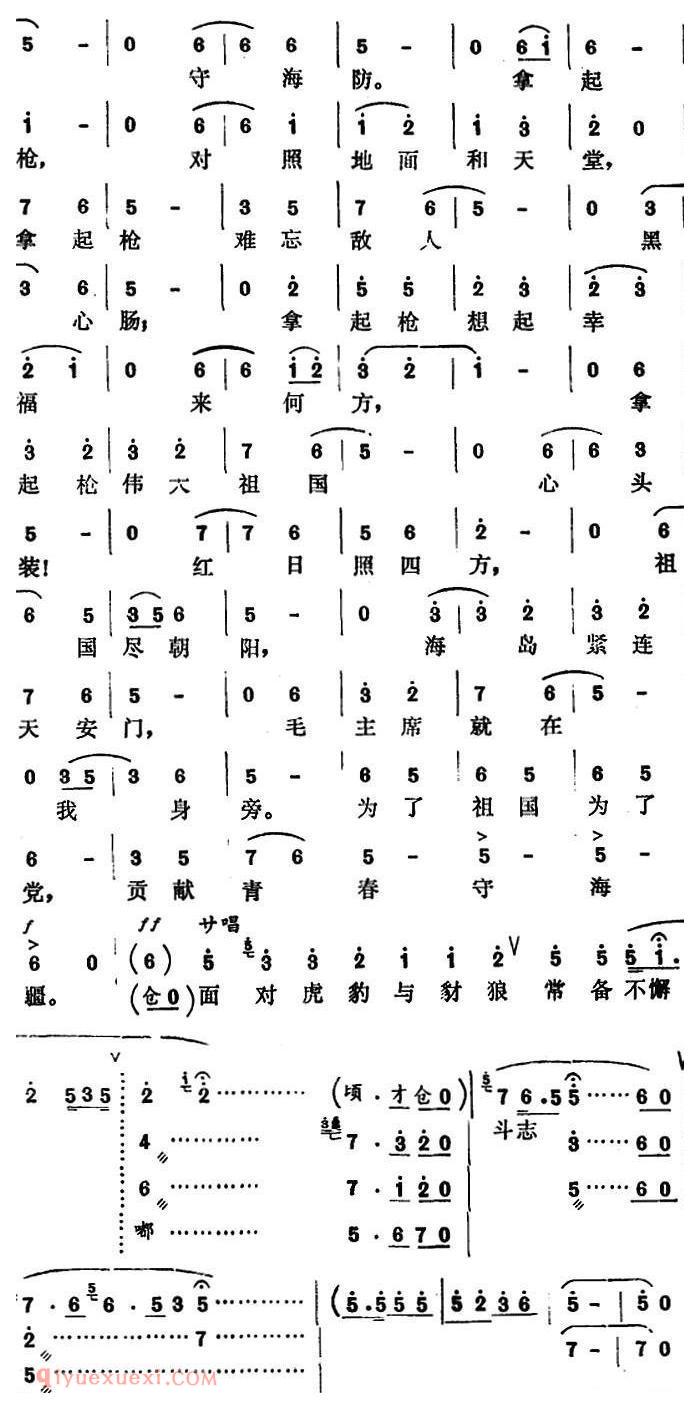 5 - | 0 6 | 6 6 | 5 - | 0 6 i | 6 -
守 海 防。 拿 起
i - | 0 6 | 6 i | i 2 | i 3 | 2 0
枪, 对 照 地 面 和 天 堂,
7 6 | 5 - | 3 5 | 7 6 | 5 - | 0 3
拿 起 枪 难 忘 敌 人 黑
3 6 | 5 - | 0 2 | 5 5 | 2 3 | 2 3
心 肠; 拿 起 枪 想 起 幸
2 i | 0 6 | 6 i 2 | 3 2 | i - | 0 6
福 来 何 方, 拿
3 2 | 3 2 | 7 6 | 5 - | 0 6 | 6 3
起 枪 伟 大 祖 国 心 头
5 - | 0 7 | 7 6 | 5 6 | 2 - | 0 6
装! 红 日 照 四 方, 祖
6 5 | 3 5 6 | 5 - | 0 3 | 3 2 | 3 2
国 尽 朝 阳, 海 岛 紧 连
7 6 | 5 - | 0 6 | 3 2 | 7 6 | 5 -
天 安 门, 毛 主 席 就 在
0 3 5 | 3 6 | 5 - | 6 5 | 6 5 | 6 5
我 身 旁。 为 了 祖 国 为 了
6 - | 3 5 | 7 6 | 5 - | 5 - | 5 -
党, 贡 献 青 春 守 海
f ff サ唱
6 0 (6) 5 5 3 3 2 i i 2 V 5 5 5 i.
疆。 (仓 0) 面 对 虎 豹 与 豺 狼 常 备 不 懈
2 5 3 5 2 i 2 ………… (顷 . 才 仓 0) 5 7 6 . 5 5 …… 6 0
斗 志
4 ………… 7 . 3 2 0 3 …… 6 0
6 ………… 7 . i 2 0 5 …… 6 0
嘟 ………… 5 . 6 7 0
7 . 6 5 6 . 5 3 5 ………… | (5 . 5 5 5 | 5 2 3 6 | 5 - | 5 0
2 ………… 7 ………… 7 - | 7 0
5 …………
qiyuexuexi.COM